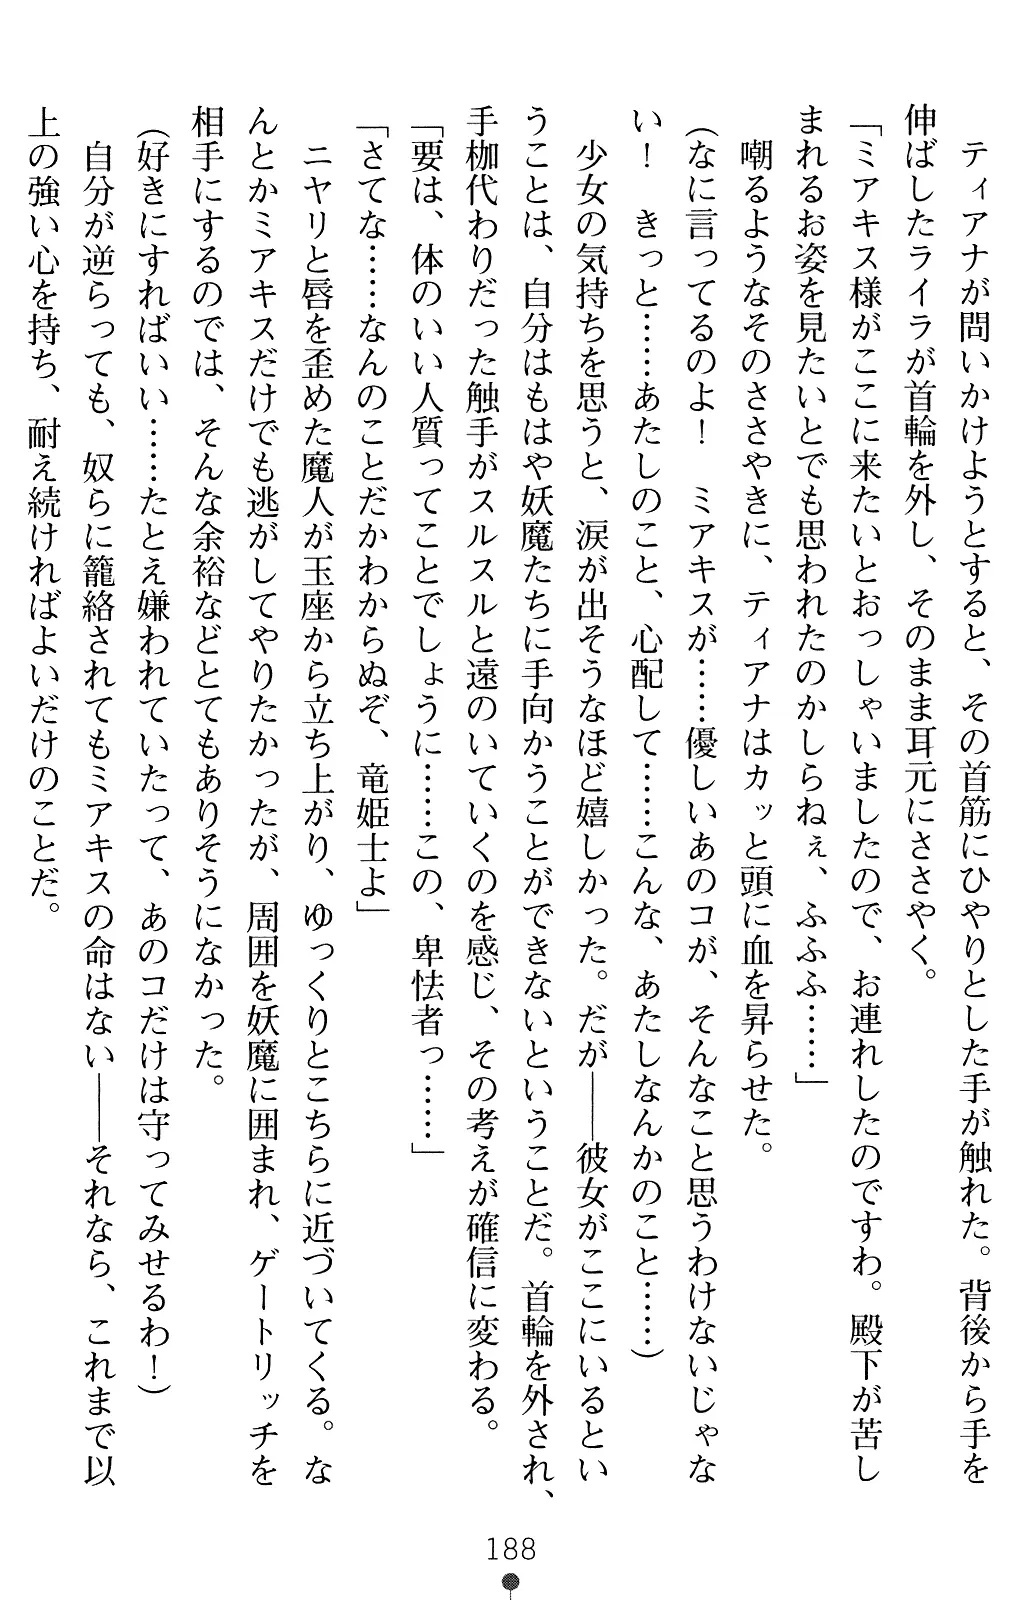 ティアナが問いかけようとすると、その首筋にひやりとした手が触れた。背後から手を
伸ばしたライラが首輪を外し、そのまま耳元にささやく。
「ミアキス様がここに来たいとおっしゃいましたので、お連れしたのですわ。殿下が苦し
まれるお姿を見たいとでも思われたのかしらねぇ、ふふふ……」
嘲るようなそのささやきに、ティアナはカッと頭に血を昇らせた。
(なに言ってるのよ！　ミアキスが……優しいあのコが、そんなこと思うわけないじゃな
い！　きっと……あたしのこと、心配して……こんな、あたしなんかのこと……)
少女の気持ちを思うと、涙が出そうなほど嬉しかった。だが――彼女がここにいるとい
うことは、自分はもはや妖魔たちに手向かうことができないということだ。首輪を外され、
手枷代わりだった触手がスルスルと遠のいていくのを感じ、その考えが確信に変わる。
「要は、体のいい人質ってことでしょうに……この、卑怯者っ……」
「さてな……なんのことだかわからぬぞ、竜姫士よ」
ニヤリと唇を歪めた魔人が玉座から立ち上がり、ゆっくりとこちらに近づいてくる。な
んとかミアキスだけでも逃がしてやりたかったが、周囲を妖魔に囲まれ、ゲートリッチを
相手にするのでは、そんな余裕などとてもありそうになかった。
(好きにすればいい……たとえ嫌われていたって、あのコだけは守ってみせるわ！)
自分が逆らっても、奴らに籠絡されてもミアキスの命はない――それなら、これまで以
上の強い心を持ち、耐え続ければよいだけのことだ。
188